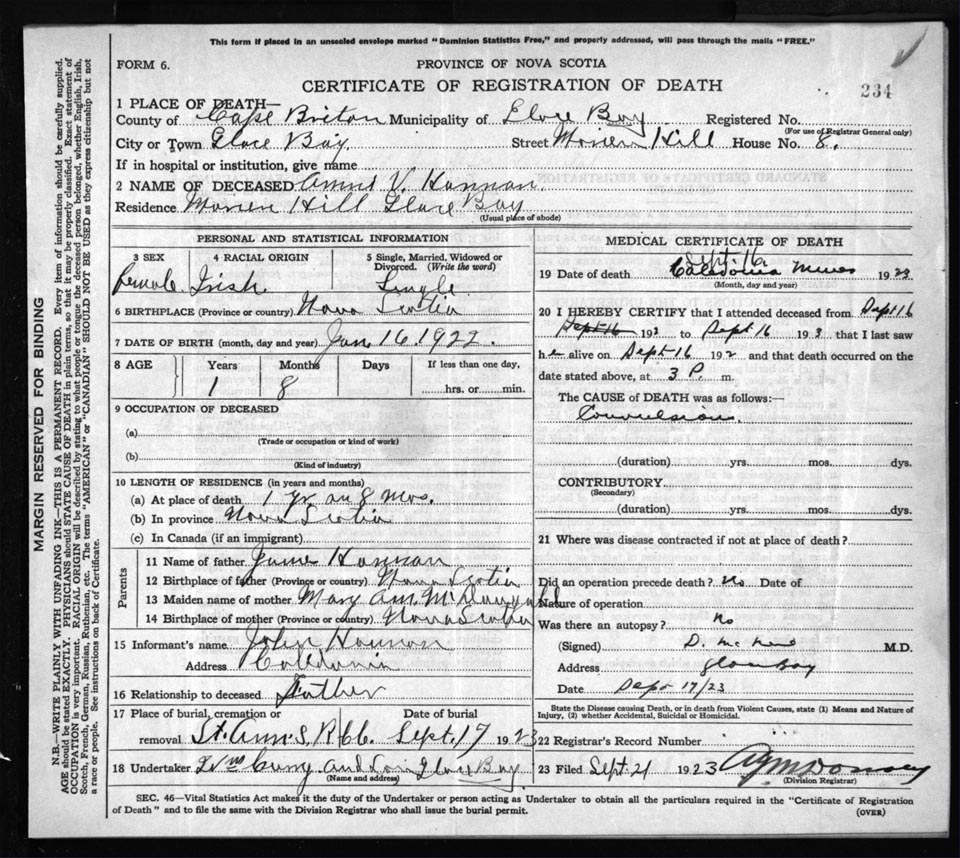 This form if placed in an unsealed envelope marked "Dominion Statistics Free," and properly addressed, will pass through the mails "FREE."
FORM 6.
PROVINCE OF NOVA SCOTIA
CERTIFICATE OF REGISTRATION OF DEATH
234
1 PLACE OF DEATH—
County of Cape Briton Municipality of Glace Bay Registered No.
(For use of Registrar General only)
City or Town Glace Bay Street Morien Hill House No. 8.
If in hospital or institution, give name
2 NAME OF DECEASED V. Hannan.
Residence Morien Hill Glace Bay
(Usual place of abode)
PERSONAL AND STATISTICAL INFORMATION
3 SEX 4 RACIAL ORIGIN 5 Single, Married, Widowed or Divorced. (Write the word)
female Irish. Single
6 BIRTHPLACE (Province or country) Nova Scotia
7 DATE OF BIRTH (month, day and year) Jan 16. 1922.
8 AGE Years Months Days If less than one day,
1 8 hrs. or min.
9 OCCUPATION OF DECEASED
(a)
(Trade or occupation or kind of work)
(b)
(Kind of industry)
10 LENGTH OF RESIDENCE (in years and months)
(a) At place of death 1 yr an 8 Mos.
(b) In province Nova Scotia
(c) In Canada (if an immigrant)
Parents
11 Name of father James Hannan
12 Birthplace of father (Province or country) Nova Scotia
13 Maiden name of mother Mary Ann
14 Birthplace of mother (Province or country) Nova Scotia
15 Informant's name John Hannan
Address Caledonia
16 Relationship to deceased Father
17 Place of burial, cremation or removal Date of burial
St. Ann's, Sept. 17 1923
18 Undertaker and Son Glace Bay
(Name and address)
MEDICAL CERTIFICATE OF DEATH
Sept. 16.
19 Date of death Caledonia Mines 1923
(Month, day and year)
20 I HEREBY CERTIFY that I attended deceased from Sept 16
Sept 16 192 to Sept 16 192 that I last saw
h alive on Sept 16 192 and that death occurred on the
date stated above, at 3 P m.
The CAUSE of DEATH was as follows:—
Convulsions.
(duration) yrs. mos. dys.
CONTRIBUTORY
(Secondary)
(duration) yrs. mos. dys.
21 Where was disease contracted if not at place of death?
Did an operation precede death? No Date of
Nature of operation
Was there an autopsy? No
(Signed) M.D.
Address Glace Bay
Date Sept 17/23
State the Disease causing Death, or in death from Violent Causes, state (1) Means and Nature of Injury, (2) whether Accidental, Suicidal or Homicidal.
22 Registrar's Record Number
23 Filed Sept. 21 1923
(Division Registrar)
SEC. 46—Vital Statistics Act makes it the duty of the Undertaker or person acting as Undertaker to obtain all the particulars required in the "Certificate of Registration
of Death" and to file the same with the Division Registrar who shall issue the burial permit.
(OVER)
MARGIN RESERVED FOR BINDING
N.B.—WRITE PLAINLY WITH UNFADING INK—THIS IS A PERMANENT RECORD. Every item of information should be carefully supplied.
AGE should be stated EXACTLY. PHYSICIANS should STATE CAUSE OF DEATH in plain terms, so that it may be properly classified. Exact statement of
OCCUPATION is very important. RACIAL ORIGIN will be described by stating to what people or tongue the deceased person belonged, whether English, Irish,
Scotch, French, German, Russian, Ruthenian, etc. The terms "AMERICAN" or "CANADIAN" SHOULD NOT BE USED as they express citizenship but not
a race or people. See instructions on back of Certificate.